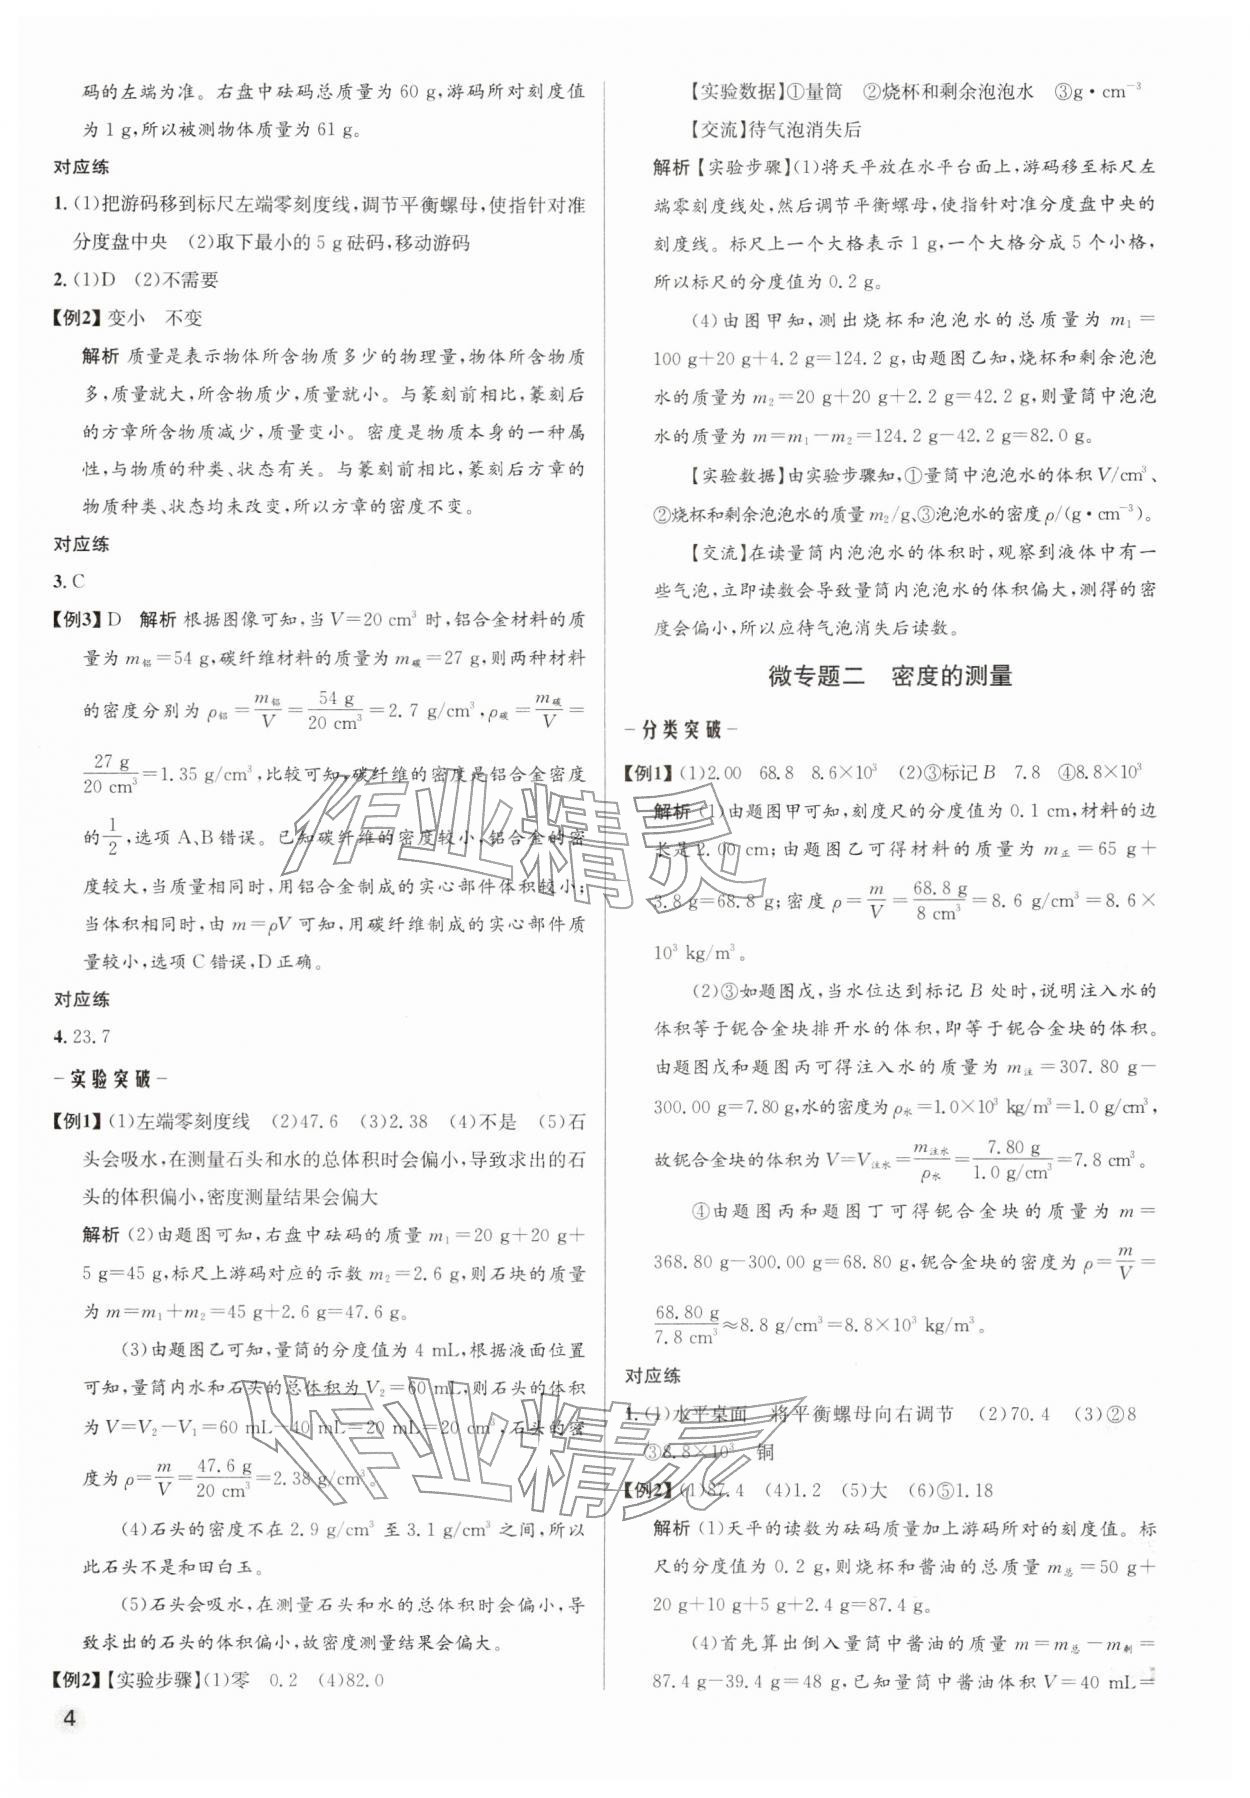 码的左端为准。右盘中砝码总质量为 60 g,游码所对刻度值
为 1 g,所以被测物体质量为 61 g。
对应练
1. (1)把游码移到标尺左端零刻度线,调节平衡螺母,使指针对准
分度盘中央 (2)取下最小的 5 g 砝码,移动游码
2. (1)D (2)不需要
【例2】变小 不变
解析 质量是表示物体所含物质多少的物理量,物体所含物质
多,质量就大,所含物质少,质量就小。与篆刻前相比,篆刻后
的方章所含物质减少,质量变小。密度是物质本身的一种属
性,与物质的种类、状态有关。与篆刻前相比,篆刻后方章的
物质种类、状态均未改变,所以方章的密度不变。
对应练
3. C
【例3】D 解析 根据图像可知,当 V=20 cm³ 时,铝合金材料的质
量为 m铝=54 g,碳纤维材料的质量为 m碳=27 g,则两种材料
的密度分别为 ρ铝=m铝/V=54 g/20 cm³=2.7 g/cm³,ρ碳=m碳/V=
27 g/20 cm³=1.35 g/cm³,比较可知,碳纤维的密度是铝合金密度
的1/2,选项 A、B 错误。已知碳纤维的密度较小,铝合金的密
度较大,当质量相同时,用铝合金制成的实心部件体积较小;
当体积相同时,由 m=ρV 可知,用碳纤维制成的实心部件质
量较小,选项 C 错误,D 正确。
对应练
4. 23.7
- 实验突破 -
【例1】(1)左端零刻度线 (2)47.6 (3)2.38 (4)不是 (5)石
头会吸水,在测量石头和水的总体积时会偏小,导致求出的石
头的体积偏小,密度测量结果会偏大
解析 (2)由题图可知,右盘中砝码的质量 m₁=20 g+20 g+
5 g=45 g,标尺上游码对应的示数 m₂=2.6 g,则石块的质量
为 m=m₁+m₂=45 g+2.6 g=47.6 g。
(3)由题图乙可知,量筒的分度值为 4 mL,根据液面位置
可知,量筒内水和石头的总体积为 V₂=60 mL,则石头的体积
为 V=V₂-V₁=60 mL-40 mL=20 mL=20 cm³,石头的密
度为 ρ=m/V=47.6 g/20 cm³=2.38 g/cm³。
(4)石头的密度不在 2.9 g/cm³ 至 3.1 g/cm³ 之间,所以
此石头不是和田白玉。
(5)石头会吸水,在测量石头和水的总体积时会偏小,导
致求出的石头的体积偏小,故密度测量结果会偏大。
【例2】【实验步骤】(1)零 0.2 (4)82.0
4
【实验数据】①量筒 ②烧杯和剩余泡泡水 ③g·cm⁻³
【交流】待气泡消失后
解析【实验步骤】(1)将天平放在水平台面上,游码移至标尺左
端零刻度线处,然后调节平衡螺母,使指针对准分度盘中央的
刻度线。标尺上一个大格表示 1 g,一个大格分成 5 个小格,
所以标尺的分度值为 0.2 g。
(4)由图甲知,测出烧杯和泡泡水的总质量为 m₁=
100 g+20 g+4.2 g=124.2 g,由题图乙知,烧杯和剩余泡泡
水的质量为 m₂=20 g+20 g+2.2 g=42.2 g,则量筒中泡泡
水的质量为 m=m₁-m₂=124.2 g-42.2 g=82.0 g。
【实验数据】由实验步骤知,①量筒中泡泡水的体积 V/cm³、
②烧杯和剩余泡泡水的质量 m₂/g、③泡泡水的密度 ρ/(g·cm⁻³)。
【交流】在读量筒内泡泡水的体积时,观察到液体中有一
些气泡,立即读数会导致量筒内泡泡水的体积偏大,测得的密
度会偏小,所以应待气泡消失后读数。
微专题二 密度的测量
- 分类突破 -
【例1】(1)2.00 68.8 8.6×10³ (2)③标记 B 7.8 ④8.8×10³
解析 (1)由题图甲可知,刻度尺的分度值为 0.1 cm,材料的边
长是 2.00 cm;由题图乙可得材料的质量为 m正=65 g+
3.8 g=68.8 g;密度 ρ=m/V=68.8 g/8 cm³=8.6 g/cm³=8.6×
10³ kg/m³。
(2)③如题图戊,当水位达到标记 B 处时,说明注入水的
体积等于铌合金块排开水的体积,即等于铌合金块的体积。
由题图戊和题图丙可得注入水的质量为 m注=307.80 g-
300.00 g=7.80 g,水的密度为 ρ水=1.0×10³ kg/m³=1.0 g/cm³,
故铌合金块的体积为 V=V注水=m注水/ρ水=7.80 g/1.0 g/cm³=7.8 cm³。
④由题图丙和题图丁可得铌合金块的质量为 m=
368.80 g-300.00 g=68.80 g,铌合金块的密度为 ρ=m/V=
68.80 g/7.8 cm³≈8.8 g/cm³=8.8×10³ kg/m³。
对应练
1. (1)水平桌面 将平衡螺母向右调节 (2)70.4 (3)②8
③8.8×10³ 铜
【例2】(1)87.4 (4)1.2 (5)大 (6)⑤1.18
解析 (1)天平的读数为砝码质量加上游码所对的刻度值。标
尺的分度值为 0.2 g,则烧杯和酱油的总质量 m总=50 g+
20 g+10 g+5 g+2.4 g=87.4 g。
(4)首先算出倒入量筒中酱油的质量 m=m总-m剩=
87.4 g-39.4 g=48 g,已知量筒中酱油体积 V=40 mL=
作业精灵
作业精灵